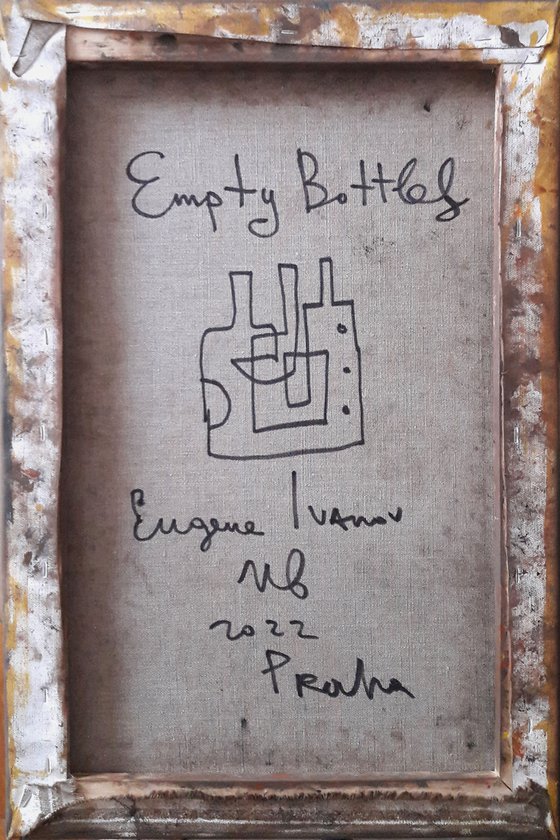 Empty Bottles
Eugene Ivanov
Ив
2022
Praha